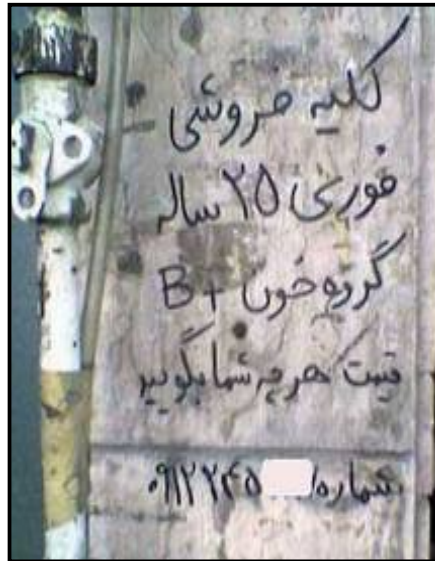 کلیه فروشی
فوری ۲۵ ساله
گروه خون B+
قیمت هرچه شما بگویید
شماره ۰۹۱۲۲۴۵